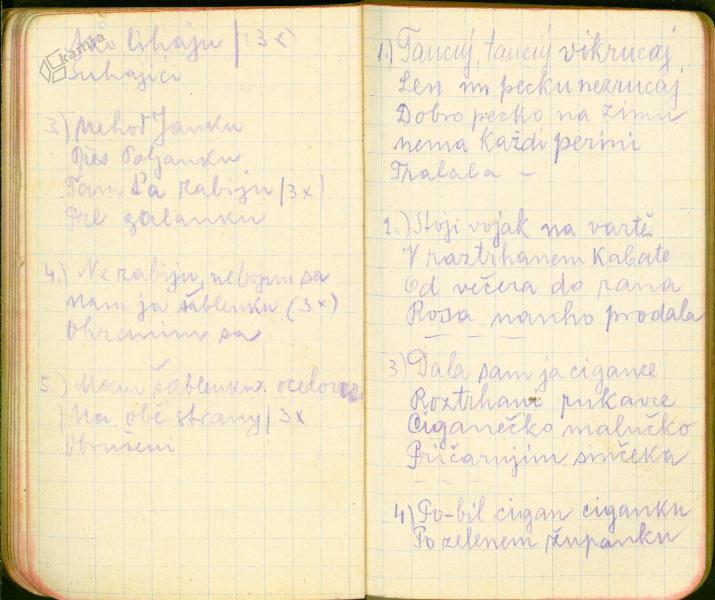 Ako lihaju (3x)
Šuhajíci
3.) Nehoď Janku
Přes Poljanku
Tam ťa zabiju (3x)
Pre galanku
4.) Ne zabiju, nebojim sa
mam ja šablenku (3x)
Ohranim sa
5.) Mam šablenku
Na obě strany / 3x
Obrušeni
kamra
1.) Tancuj, tancuj vikrucaj
Len mi pecku nezrucaj
Dobro pecko na zimu
nema každi perini
Tralala —
2.) Stoji vojak na vartě
V raztrhanem Kabate
Od večera do rana
Rosa nanho prodala
3) Dala sam ja cigance
Roztrhani rukavce
Ciganečko malučko
Pričarujim sinčeka
4) Po-bil cigan ciganku
Po zelenem župančku